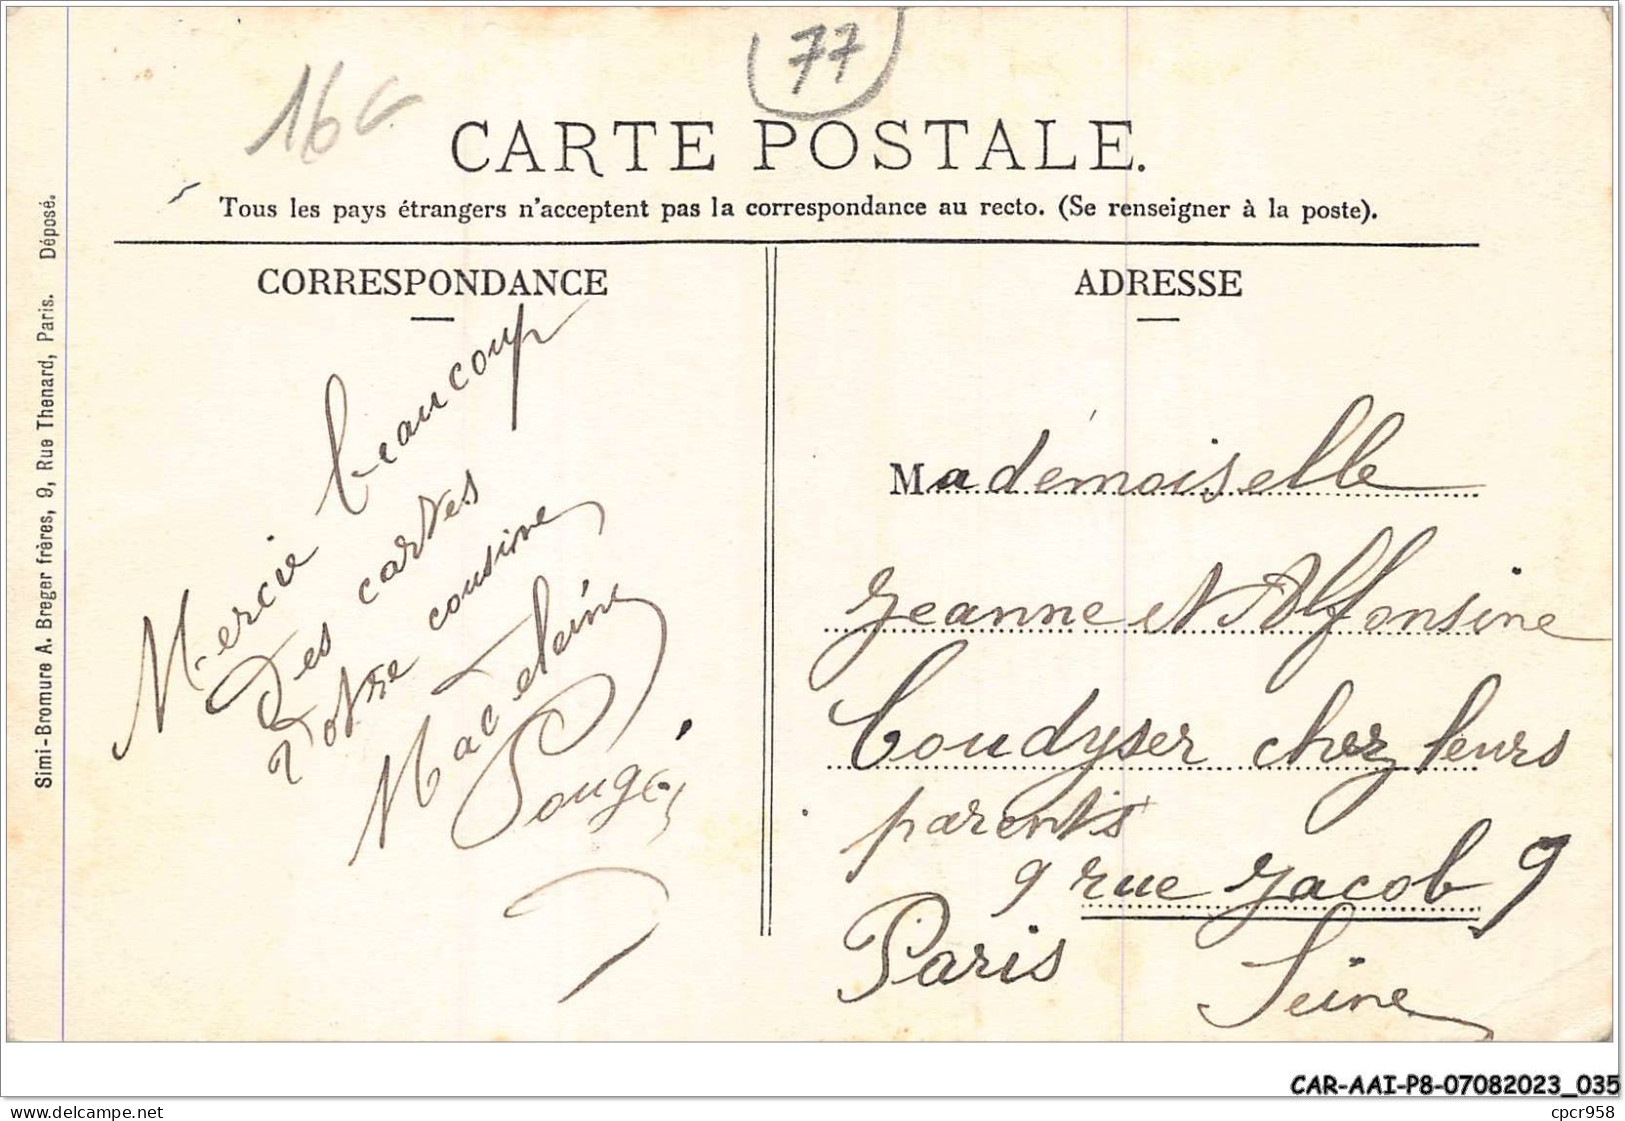 77
16
CARTE POSTALE.
Tous les pays étrangers n'acceptent pas la correspondance au recto. (Se renseigner à la poste).
Simi-Bromure A. Breger frères, 9, Rue Thenard, Paris. Déposé.
CORRESPONDANCE
Mercie beaucoup
des cartes
votre cousine
Madeleine
Pougé
ADRESSE
Mademoiselle
Jeanne et Alfonsine
Coudyser chez leurs
parents
9 rue Jacob 9
Paris Seine
CAR-AAI-P8-07082023_035
www.delcampe.net
cpcr958